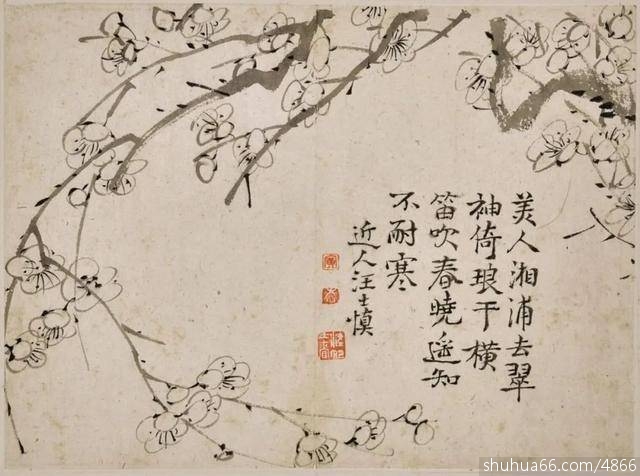 美人湘浦去翠
袖倚琅干横
笛吹春曉遥知
不耐寒
近人汪士慎
shuhua66.com/4866